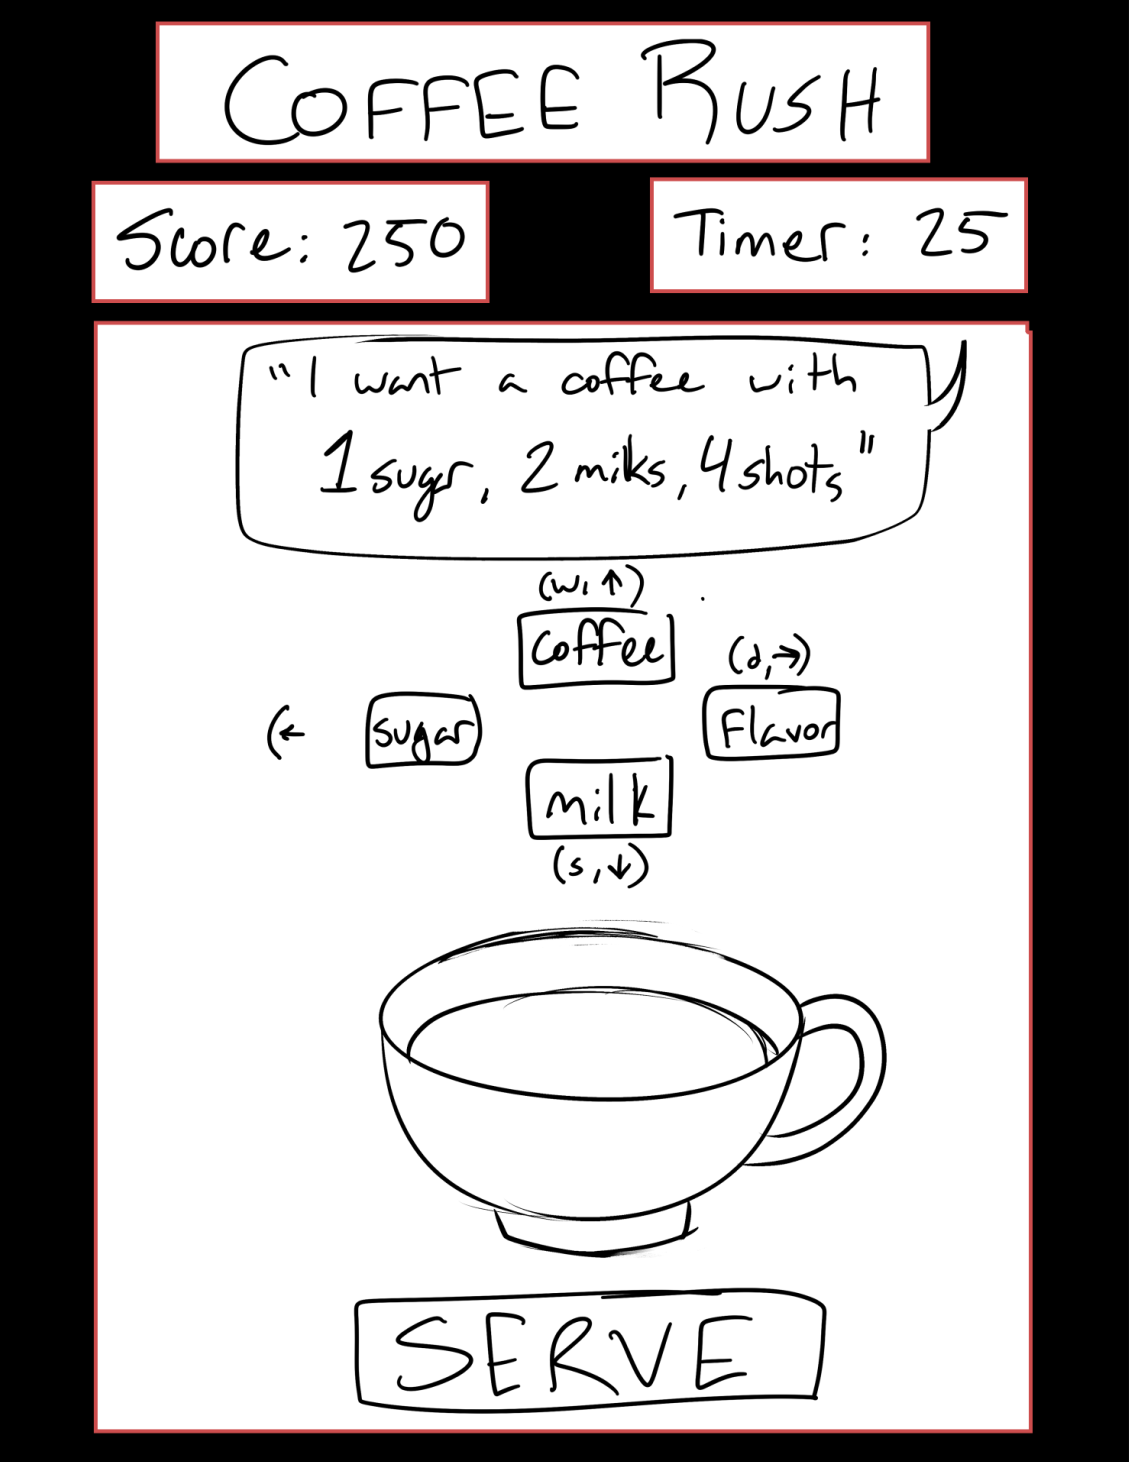 COFFEE RUSH
Score: 250
Timer: 25
"I want a coffee with
1 sugar, 2 milks, 4 shots"
(w, ↑)
Coffee
(d, →)
(←
sugar
Flavor
milk
(s, ↓)
SERVE